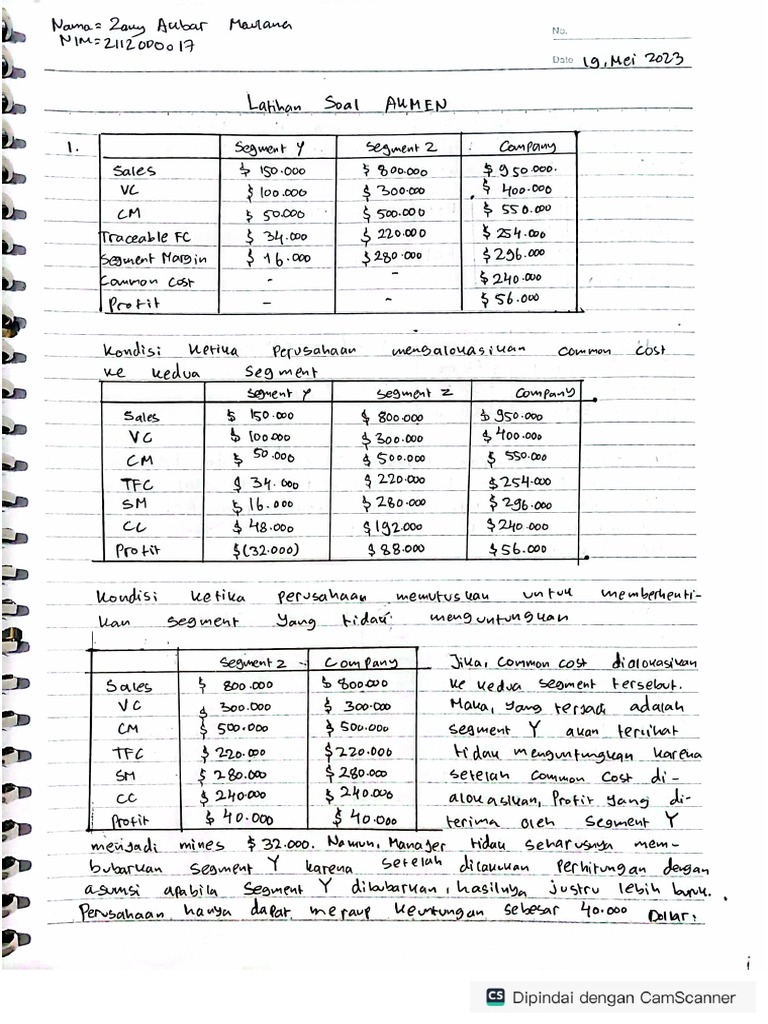 Nama = Zany Akbar Maulana
NIM = 2112000017
No.
Date 19, Mei 2023
Latihan Soal AKMEN
1. Segment Y Segment Z Company
Sales $ 150.000 $ 800.000 $ 950.000.
VC $ 100.000 $ 300.000 $ 400.000
CM $ 50.000 $ 500.000 $ 550.000
Traceable FC $ 34.000 $ 220.000 $ 254.000
Segment Margin $ 16.000 $ 280.000 $ 296.000
Common Cost - - $ 240.000
Profit - - $ 56.000
Kondisi ketika perusahaan mengalokasikan common cost
ke kedua segment
Segment Y Segment Z Company
Sales $ 150.000 $ 800.000 $ 950.000
VC $ 100.000 $ 300.000 $ 400.000
CM $ 50.000 $ 500.000 $ 550.000
TFC $ 34.000 $ 220.000 $ 254.000
SM $ 16.000 $ 280.000 $ 296.000
CC $ 48.000 $ 192.000 $ 240.000
Profit $ (32.000) $ 88.000 $ 56.000
Kondisi ketika perusahaan memutuskan untuk memberhenti-
kan segment yang tidak menguntungkan
Segment Z Company
Sales $ 800.000 $ 800.000
VC $ 300.000 $ 300.000
CM $ 500.000 $ 500.000
TFC $ 220.000 $ 220.000
SM $ 280.000 $ 280.000
CC $ 240.000 $ 240.000
Profit $ 40.000 $ 40.000
Jika, common cost dialokasikan
ke kedua segment tersebut.
Maka, yang terjadi adalah
segment Y akan terlihat
tidak menguntungkan karena
setelah common cost di-
alokasikan, Profit yang di-
terima oleh segment Y
menjadi mines $ 32.000. Namun, Manajer tidak seharusnya mem-
bubarkan segment Y karena setelah dilakukan perhitungan dengan
asumsi apabila segment Y dibubarkan, hasilnya justru lebih buruk.
Perusahaan hanya dapat meraup keuntungan sebesar 40.000 Dollar.
i
CS Dipindai dengan CamScanner